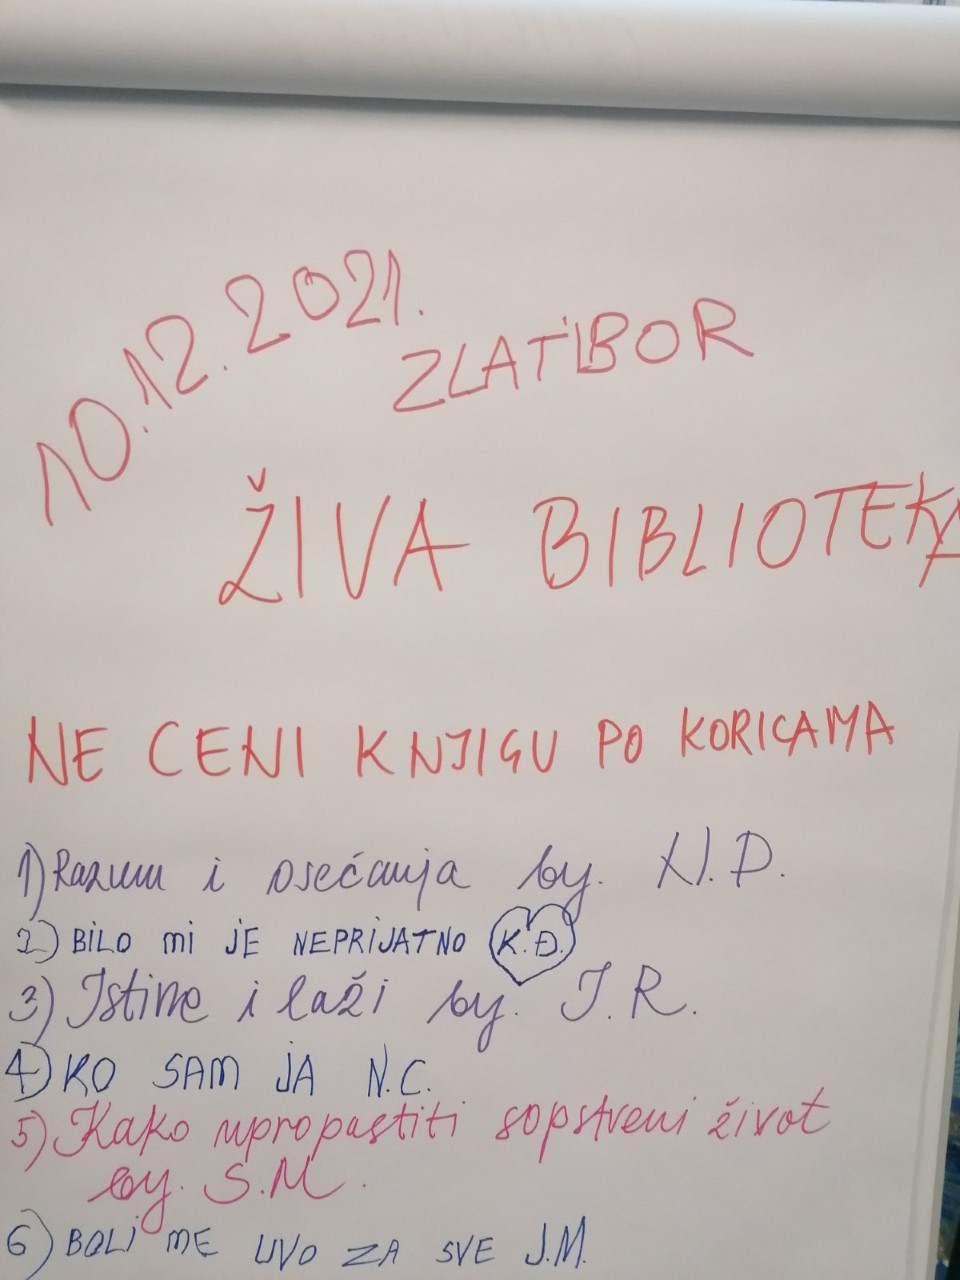 10.12.2021.
ZLATIBOR
ŽIVA BIBLIOTEKA
NE CENI KNJIGU PO KORICAMA
1) Razum i osećanja by. N.D.
2) BILO MI JE NEPRIJATNO K.Đ.
3) Istine i laži by. I.R.
4) KO SAM JA N.C.
5) Kako upropastiti sopstveni život
by. S.M.
6) BOLI ME UVO ZA SVE J.M.